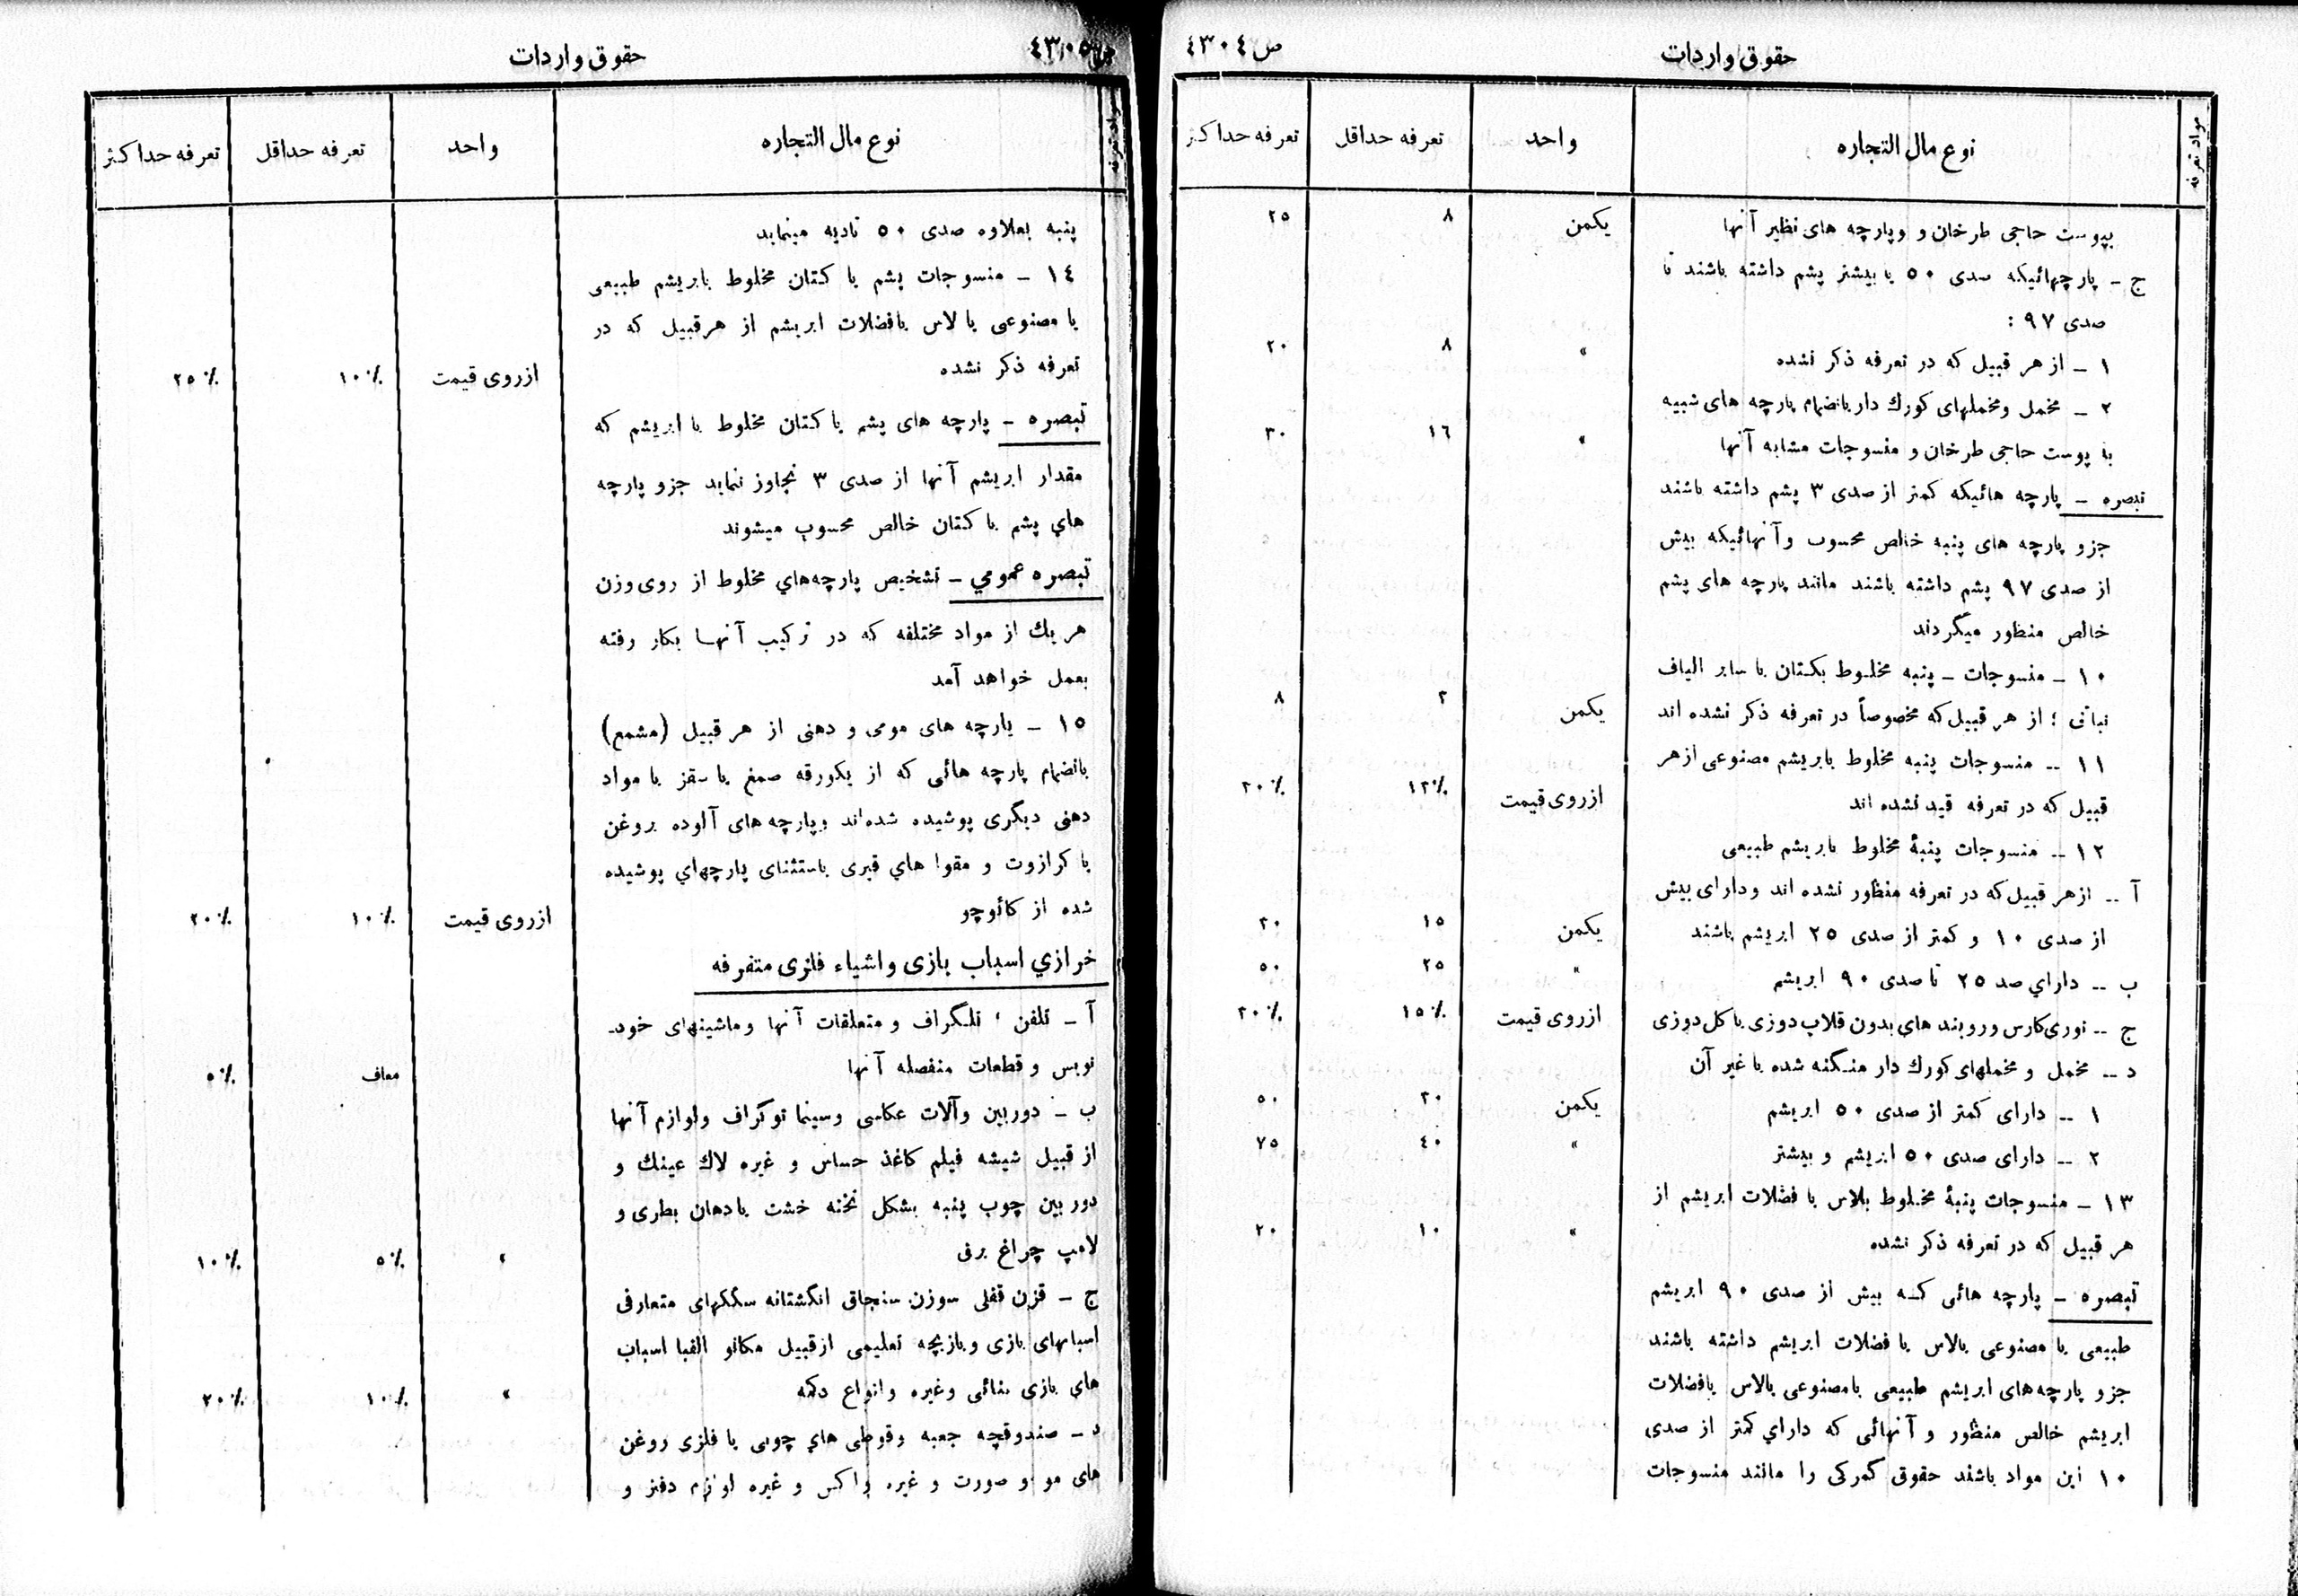 حقوق واردات
ص ٤٣٠٤
مواد تعرفه
نوع مال التجاره
واحد
تعرفه حداقل
تعرفه حداکثر
بپوست حاجی طرخان و وپارچه های نظیر آنها یکمن ٨ ٢٥
ج – پارچهائیکه صدی ٥٠ یا بیشتر پشم داشته باشند تا
صدی ٩٧ :
١ – از هر قبیل که در تعرفه ذکر نشده » ٨ ٢٠
٢ – مخمل ومخملهای کورك دار بانضمام پارچه های شبیه
به پوست حاجی طرخان و منسوجات مشابه آنها » ١٦ ٣٠
تبصره – پارچه هائیکه کمتر از صدی ٣ پشم داشته باشند
جزو پارچه های پنبه خالص محسوب وآنهائیکه بیش
از صدی ٩٧ پشم داشته باشند مانند پارچه های پشم
خالص منظور میگردند
١٠ – منسوجات – پنبه مخلوط بکتان یا سایر الیاف
نباتی ؛ از هر قبیل که مخصوصاً در تعرفه ذکر نشده اند یکمن ٢ ٨
١١ – منسوجات پنبه مخلوط بابریشم مصنوعی ازهر
قبیل که در تعرفه قید نشده اند ازروی قیمت ١٢٪ ٢٠٪
١٢ – منسوجات پنبهٔ مخلوط بابریشم طبیعی
آ – ازهر قبیل که در تعرفه منظور نشده اند ودارای بیش
از صدی ١٠ و کمتر از صدی ٢٥ ابریشم باشند یکمن ١٥ ٣٠
ب – داراي صد ٢٥ تا صدی ٩٠ ابریشم » ٢٥ ٥٠
ج – توری کارس وروبند های بدون قلاب دوزی یا گل دوزی ازروی قیمت ١٥٪ ٢٠٪
د – مخمل و مخملهای کورك دار منگنه شده یا غیر آن
١ – دارای کمتر از صدی ٥٠ ابریشم یکمن ٣٠ ٥٠
٢ – دارای صدی ٥٠ ابریشم و بیشتر » ٤٠ ٧٥
١٣ – منسوجات پنبهٔ مخلوط بلاس یا فضلات ابریشم از
هر قبیل که در تعرفه ذکر نشده » ١٠ ٢٠
تبصره – پارچه هائی که بیش از صدی ٩٠ ابریشم
طبیعی یا مصنوعی یالاس یا فضلات ابریشم داشته باشند
جزو پارچه های ابریشم طبیعی یامصنوعی یالاس یافضلات
ابریشم خالص منظور و آنهائی که داراي کمتر از صدی
١٠ این مواد باشند حقوق گمرکی را مانند منسوجات
حقوق واردات
ص ٤٣٠٥
مواد تعرفه
نوع مال التجاره
واحد
تعرفه حداقل
تعرفه حداکثر
پنبه بعلاوه صدی ٥٠ تادیه مینماید
١٤ – منسوجات پشم یا کتان مخلوط بابریشم طبیعی
یا مصنوعی یا لاس یافضلات ابریشم از هرقبیل که در
تعرفه ذکر نشده ازروی قیمت ١٠٪ ٢٥٪
تبصره – پارچه های پشم یا کتان مخلوط با ابریشم که
مقدار ابریشم آنها از صدی ٣ تجاوز ننماید جزو پارچه
هاي پشم یا کتان خالص محسوب میشوند
تبصره عمومي – تشخیص پارچه‌هاي مخلوط از روی وزن
هر یك از مواد مختلفه که در ترکیب آنها بکار رفته
بعمل خواهد آمد
١٥ – پارچه های مومی و دهنی از هر قبیل (مشمع)
بانضمام پارچه هائی که از یکورقه صمغ یا سقز یا مواد
دهنی دیگری پوشیده شده‌اند وپارچه های آلوده بروغن
یا کرازوت و مقوا هاي قیری باستثنای پارچهاي پوشیده
شده از کائوچو ازروی قیمت ١٠٪ ٢٠٪
خرازي اسباب بازی واشیاء فلزی متفرقه
آ – تلفن ؛ تلگراف و متعلقات آنها وماشینهای خود-
نویس وقطعات منفصله آنها معاف ٥٪
ب – دوربین وآلات عکاسی وسینما توگراف ولوازم آنها
از قبیل شیشه فیلم کاغذ حساس و غیره لاك عینك و
دوربین چوب پنبه بشکل تخته خشت یادهان بطری و
لامپ چراغ برقی » ٥٪ ١٠٪
ج – قزن قفلی سوزن سنجاق انگشتانه سگکهای متعارفی
اسبابهای بازی وبازیچه تعلیمی ازقبیل مکانو الفبا اسباب
هاي بازی بنائی وغیره وانواع دکمه » ١٠٪ ٢٠٪
د – صندوقچه جعبه وقوطی هاي چوبی یا فلزی روغن
های مو و صورت و غیره واکس و غیره لوازم دفتر و